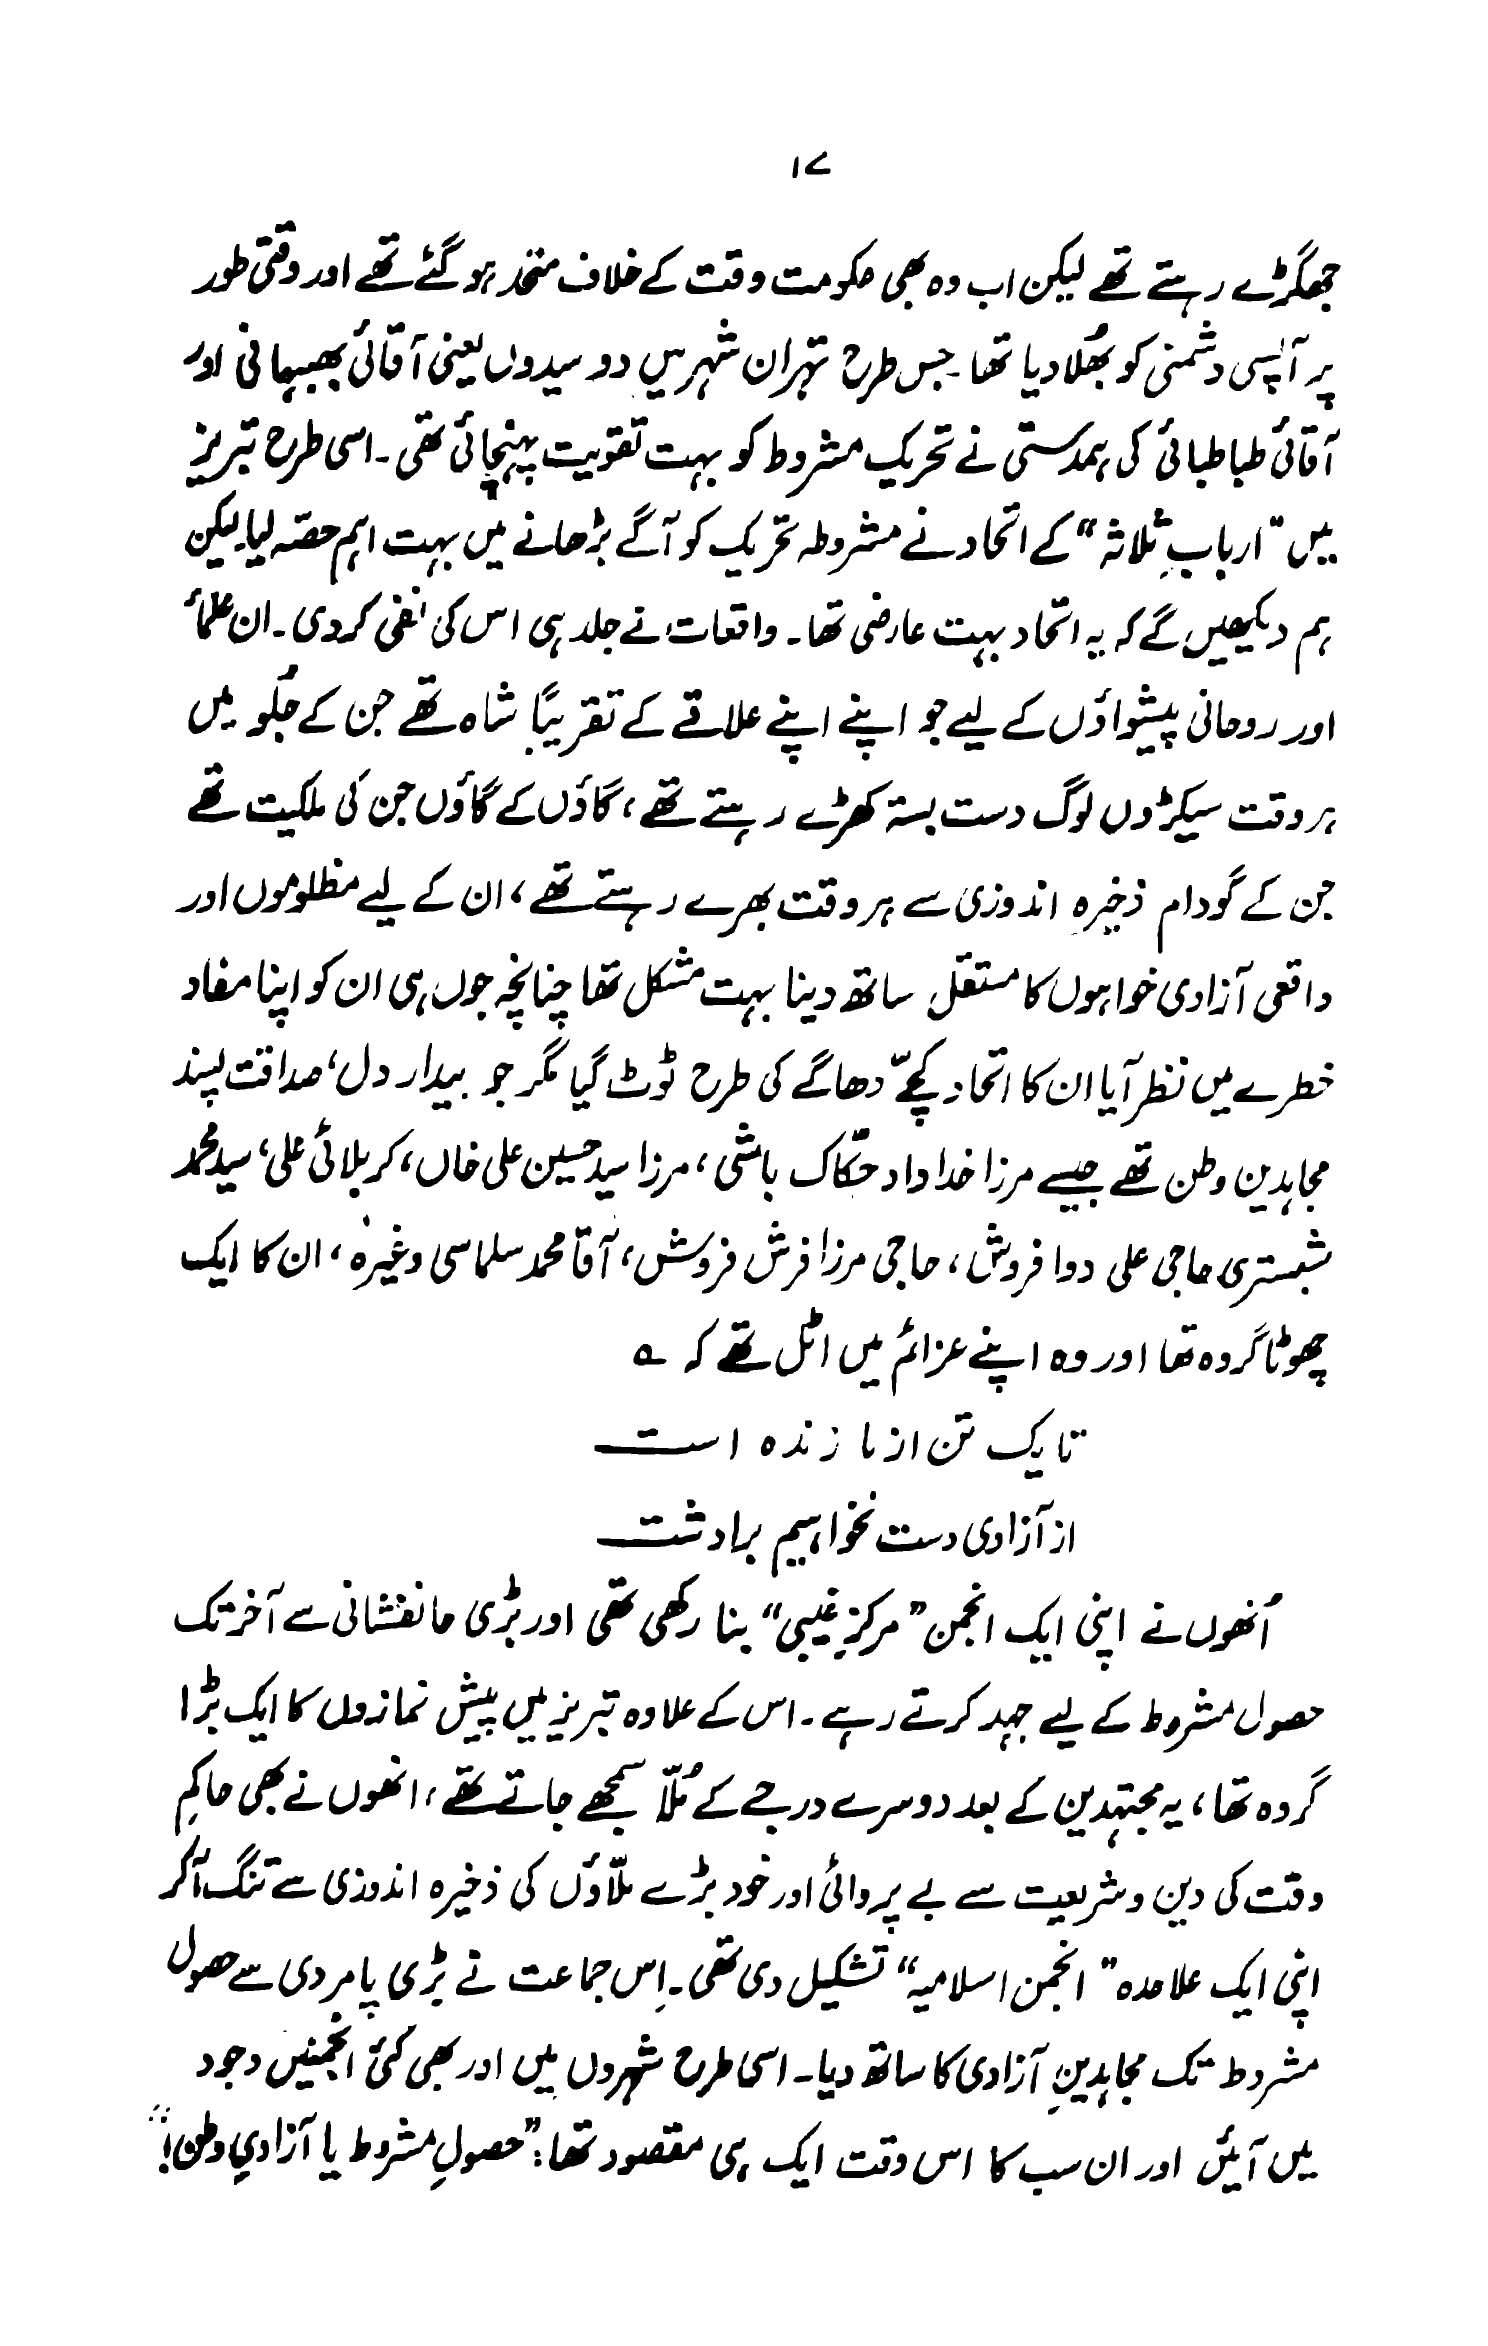 ۱۷
جھگڑے رہتے تھے لیکن اب وہ بھی حکومت وقت کے خلاف متحد ہو گئے تھے اور وقتی طور
پر آپسی دشمنی کو بھُلا دیا تھا۔ جس طرح تہران شہر میں دو سیدوں یعنی آقائی بھبھانی اور
آقائی طباطبائی کی ہمدستی نے تحریک مشروط کو بہت تقویت پہنچائی تھی۔ اسی طرح تبریز
میں "اربابِ ثلاثہ" کے اتحاد نے مشروطہ تحریک کو آگے بڑھانے میں بہت اہم حصّہ لیا۔ لیکن
ہم دیکھیں گے کہ یہ اتحاد بہت عارضی تھا۔ واقعات نے جلد ہی اس کی نفی کر دی۔ ان علمأ
اور روحانی پیشواؤں کے لیے جو اپنے اپنے علاقے کے تقریباً شاہ تھے جن کے جُلو میں
ہر وقت سیکڑوں لوگ دست بستہ کھڑے رہتے تھے، گاؤں کے گاؤں جن کی ملکیت تھے
جن کے گودام ذخیرہ اندوزی سے ہر وقت بھرے رہتے تھے، ان کے لیے مظلوموں اور
واقعی آزادی خواہوں کا مستقل ساتھ دینا بہت مشکل تھا چنانچہ جوں ہی ان کو اپنا مفاد
خطرے میں نظر آیا ان کا اتحاد کچّے دھاگے کی طرح ٹوٹ گیا مگر جو بیدار دل، صداقت پسند
مجاہدین وطن تھے جیسے مرزا خداداد حکّاک باشی، مرزا سید حسین علی خاں، کربلائی علی، سید محمد
شبستری حاجی علی دوا فروش، حاجی مرزا فرش فروش، آقا محمد سلماسی وغیرہ، ان کا ایک
چھوٹا گروہ تھا اور وہ اپنے عزائم میں اٹل تھے کہ ؎
تا یک تن از ما زندہ است
از آزادی دست نخواہیم برداشت
اُنھوں نے اپنی ایک انجمن "مرکزِ غیبی" بنا رکھی تھی اور بڑی جانفشانی سے آخر تک
حصول مشروط کے لیے جہد کرتے رہے۔ اس کے علاوہ تبریز میں پیش نمازوں کا ایک بڑا
گروہ تھا، یہ مجتہدین کے بعد دوسرے درجے کے مُلّا سمجھے جاتے تھے، انھوں نے بھی حاکمِ
وقت کی دین و شریعت سے بے پروائی اور خود بڑے ملّاؤں کی ذخیرہ اندوزی سے تنگ آ کر
اپنی ایک علاحدہ "انجمن اسلامیہ" تشکیل دی تھی۔ اِس جماعت نے بڑی پامردی سے حصول
مشروط تک مجاہدینِ آزادی کا ساتھ دیا۔ اسی طرح شہروں میں اور بھی کئی انجمنیں وجود
میں آئیں اور ان سب کا اس وقت ایک ہی مقصود تھا: "حصولِ مشروط یا آزادیِ وطن!"